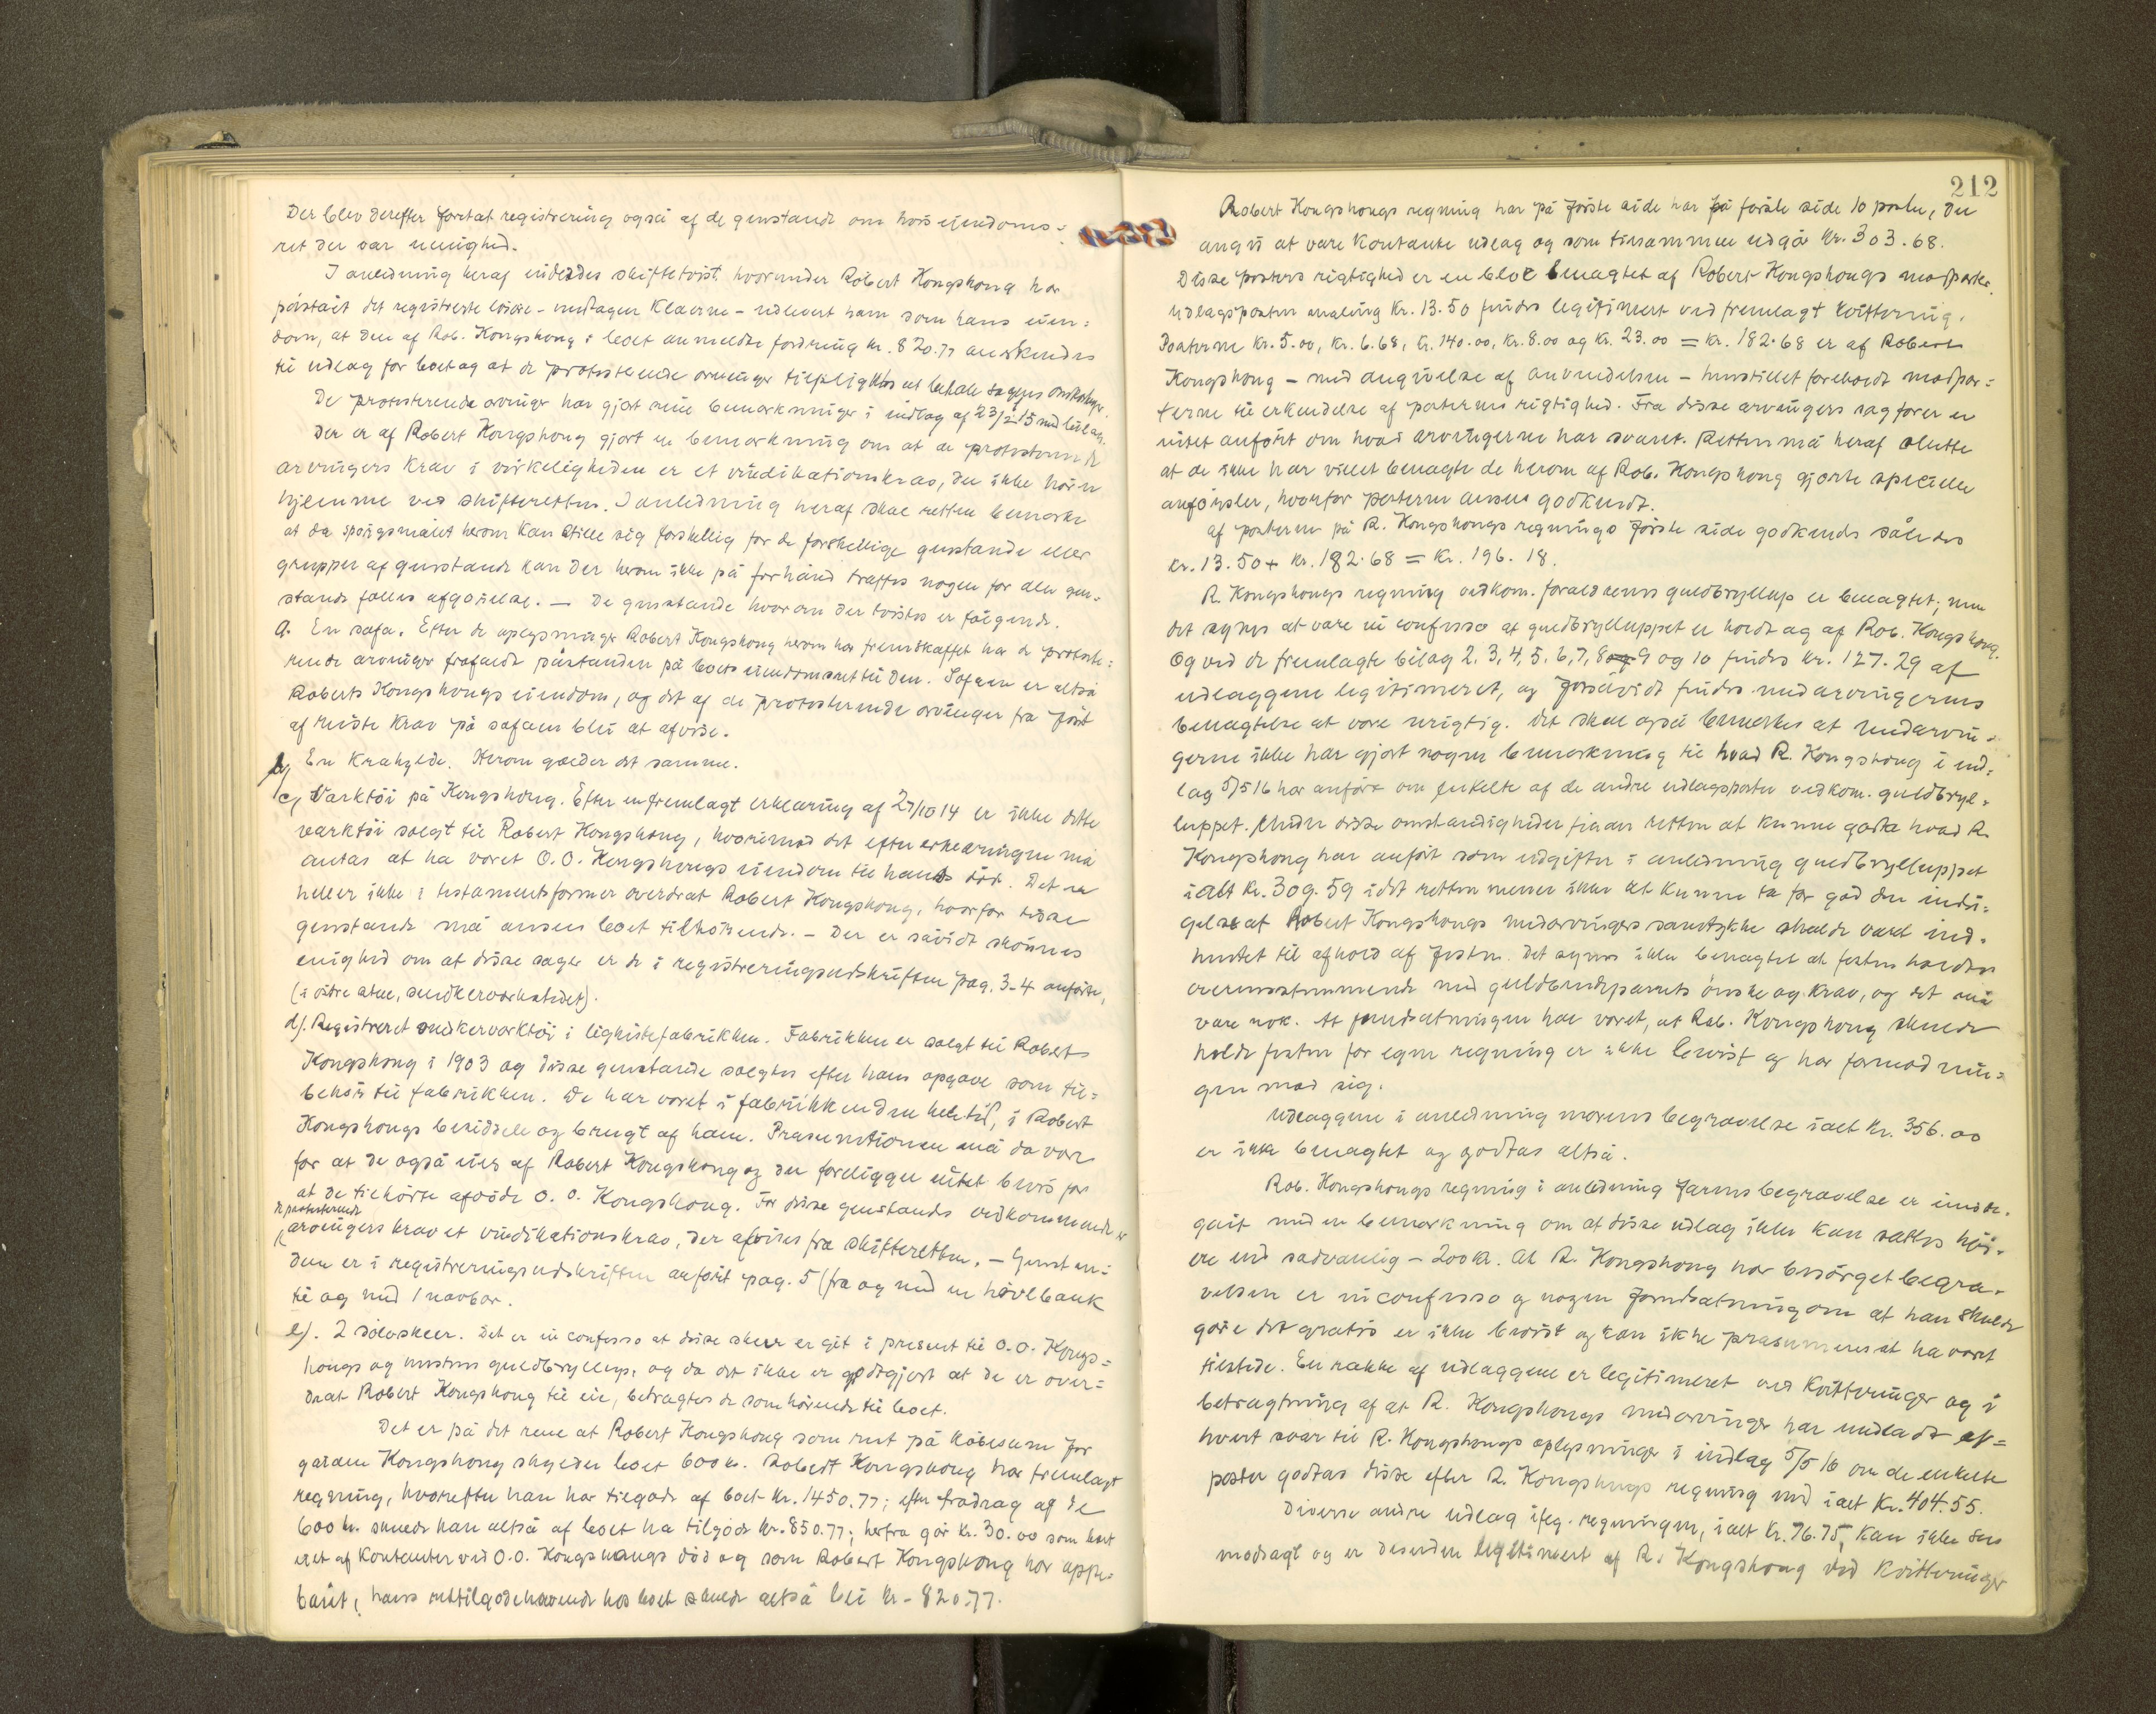 Der blev derefter foretat registrering også af de genstande om hvis eiendoms=
ret der var uenighed.
I anledning heraf indeedes skiftetvist hvorunder Robert Kongshong har
påstaåt det registrerte løsøre - undtagen Klærne - udlevert ham som hans eien=
dom, at den af Rob. Kongshong i boet anmeldte fordring kr. 820.77 anerkendes
til udlæg for boet og at de protesterende arvinger tilpligtes at betale sagens omkostninger.
De protesterende arvinger har gjort sine bemærkninger i indlæg af 23/2 15 med bilag.
Der er af Robert Kongshong gjort en bemærkning om at de protesterende
arvingers krav i virkeligheden er et vindikationskrav, der ikke hører
hjemme ved skifteretten. I anledning heraf skal retten bemærke
at da spørgsmålet herom kan stille sig forskellig for de forskellige genstande eller
grupper af genstande kan der herom ikke på forhånd træffes nogen for alle gen-
stande fælles afgørelse. — De genstande hvorom der tvistes er følgende.
a. En sofa. Efter de oplysninger Robert Kongshong herom har fremskaffet har de proteste=
rende arvinger frafaldt påstanden på boets eiendomsret til den. Sofaen er altså
Roberts Kongshongs eiendom, og det af de protesterende arvinger fra først
af reiste krav på sofaen blir at afvise.
b, En Krakylde. Herom gælder det samme.
c, Værktøi på Kongshong. Efter en fremlagt erklæring af 27/10 14 er ikke dette
værktøi solgt til Robert Kongshong, hvorimod det efter erklæringen må
antas at ha været O. O. Kongshongs eiendom til hans død. Det er
heller ikke i testamentsformer overdrat Robert Kongshong, hvorfor disse
genstande må anses boet tilhørende. - Der er såvidt skønnes
enighed om at disse sager er de i registreringsudskriften pag. 3-4 anførte,
(i vestre stue, snedkerværkstedet).
d). Registreret snedkerværktøi i ligkistefabrikken. Fabrikken er solgt til Robert
Kongshong i 1903 og disse genstande solgtes efter hans opgave som til=
behør til fabrikken. De har været i fabrikken den hele tid, i Robert
Kongshongs besiddelse og brugt af ham. Præsumtionen må da være
for at de også eies af Robert Kongshong og der foreligger intet bevis for
at de tilhørte afdøde O. O. Kongshong. For disse genstands vedkommende er
de protesterende
arvingers krav et vindikationskrav, der afvises fra skifteretten. — Genstan=
dene er i registreringsudskriften anført pag. 5 (fra og med en høvlbænk
til og med 1 navbor.
e). 2 sølvskeer. Det er in confesso at disse skeer er git i present til O. O. Kongs=
hongs og hustrus guldbryllup, og da det ikke er godtgjort at de er over=
drat Robert Kongshong til eie, betragtes de som hørende til boet.
Det er på det rene at Robert Kongshong som rest på købesum for
gården Kongshong skylder boet 600 kr. Robert Kongshong har fremlagt
regning, hvorefter han har tilgode af boet kr. 1450.77; efter fradrag af de
600 kr. skulde han altså af boet ha tilgode kr. 850.77; herfra går kr. 30.00 som
af kontanter ved O.O. Kongshongs død og som Robert Kongshong har oppe=
båret, hans resttilgodehavende hos boet skulde altså bli kr. 820.77.
212
Robert Kongshongs regning har på første side har på første side 10 poster, der
angis at være kontante udlæg og som tilsammen udgør kr. 303.68.
Disse posters rigtighed er en bloc benægtet af Robert Kongshongs modparter.
Udlægsposten maling kr. 13.50 findes legitimert ved fremlagt kvittering.
Posterne kr. 5.00, kr. 6.68, kr. 140.00, kr. 8.00 og kr. 23.00 = kr. 182.68 er af Robert
Kongshong - med angivelse af anvendelsen - henstillet foreholdt modpar=
terne til erkendelse af posternes rigtighed. Fra disse arvingers sagfører er
intet anført om hvad arvingerne har svaret. Retten må heraf slutte
at de ikke har villet benægte de herom af Rob. Kongshong gjorte specielle
anførsler, hvorfor posterne anses godkendt.
Af posterne på R. Kongshongs regnings første side godkendes således
kr. 13.50 + kr. 182.68 = kr. 196.18.
R. Kongshongs regning vedkom. forældrenes guldbryllup er benægtet; men
det synes at være in confesso at guldbrylluppet er holdt og af Rob. Kongshong.
Og ved de fremlagte bilag 2, 3, 4, 5, 6, 7, 8 og 9 og 10 findes kr. 127.29 af
udlæggene legitimeret, og forsåvidt findes medarvingernes
benægtelse at være urigtig. Det skal også bemerkes at medarvin=
gerne ikke har gjort nogen bemærkning til hvad R. Kongshong i ind=
læg 5/5 16 har anført om enkelte af de andre udlægsposter vedkom. guldbryl=
luppet. Under disse omstændigheder finder retten at kunne godta hvad R.
Kongshong har anført som udgifter i anledning guldbrylluppet
ialt kr. 309.59 idet retten mener ikke at kunne ta for god den indsi=
gelse at Robert Kongshongs medarvingers samtykke skulde være ind=
hentet til afhold af festen. Det synes ikke benægtet at festen holdtes
overensstemmende med guldbrudeparrets ønske og krav, og det må
være nok. At forudsætningen har været, at Rob. Kongshong skulde
holde festen for egen regning er ikke bevist og har formodnin=
gen mod sig.
Udlæggene i anledning morens begravelse ialt kr. 356.00
er ikke benægtet og godtas altså.
Rob. Kongshongs regning i anledning farens begravelse er imøde=
gåt med en bemærkning om at disse udlæg ikke kan sættes høi=
ere end sædvanlig - 200 kr. At R. Kongshong har besørget begra=
velsen er in confesso og nogen forudsætning om at han skulde
gøre det gratis er ikke bevist og kan ikke præsumeres at ha været
tilstede. En række af udlæggene er legitimeret ved kvitteringer og i
betragtning af at R. Kongshongs medarvinger har undladt et=
hvert svar til R. Kongshongs oplysninger i indlæg 5/5 16 om de enkelte
poster godtas disse efter R. Kongshongs regning med ialt kr. 404.55.
Diverse andre udlæg iflg. regningen, ialt kr. 76.75, kan ikke sees
modsagt og er desuden legitimert af R. Kongshong ved kvitteringer